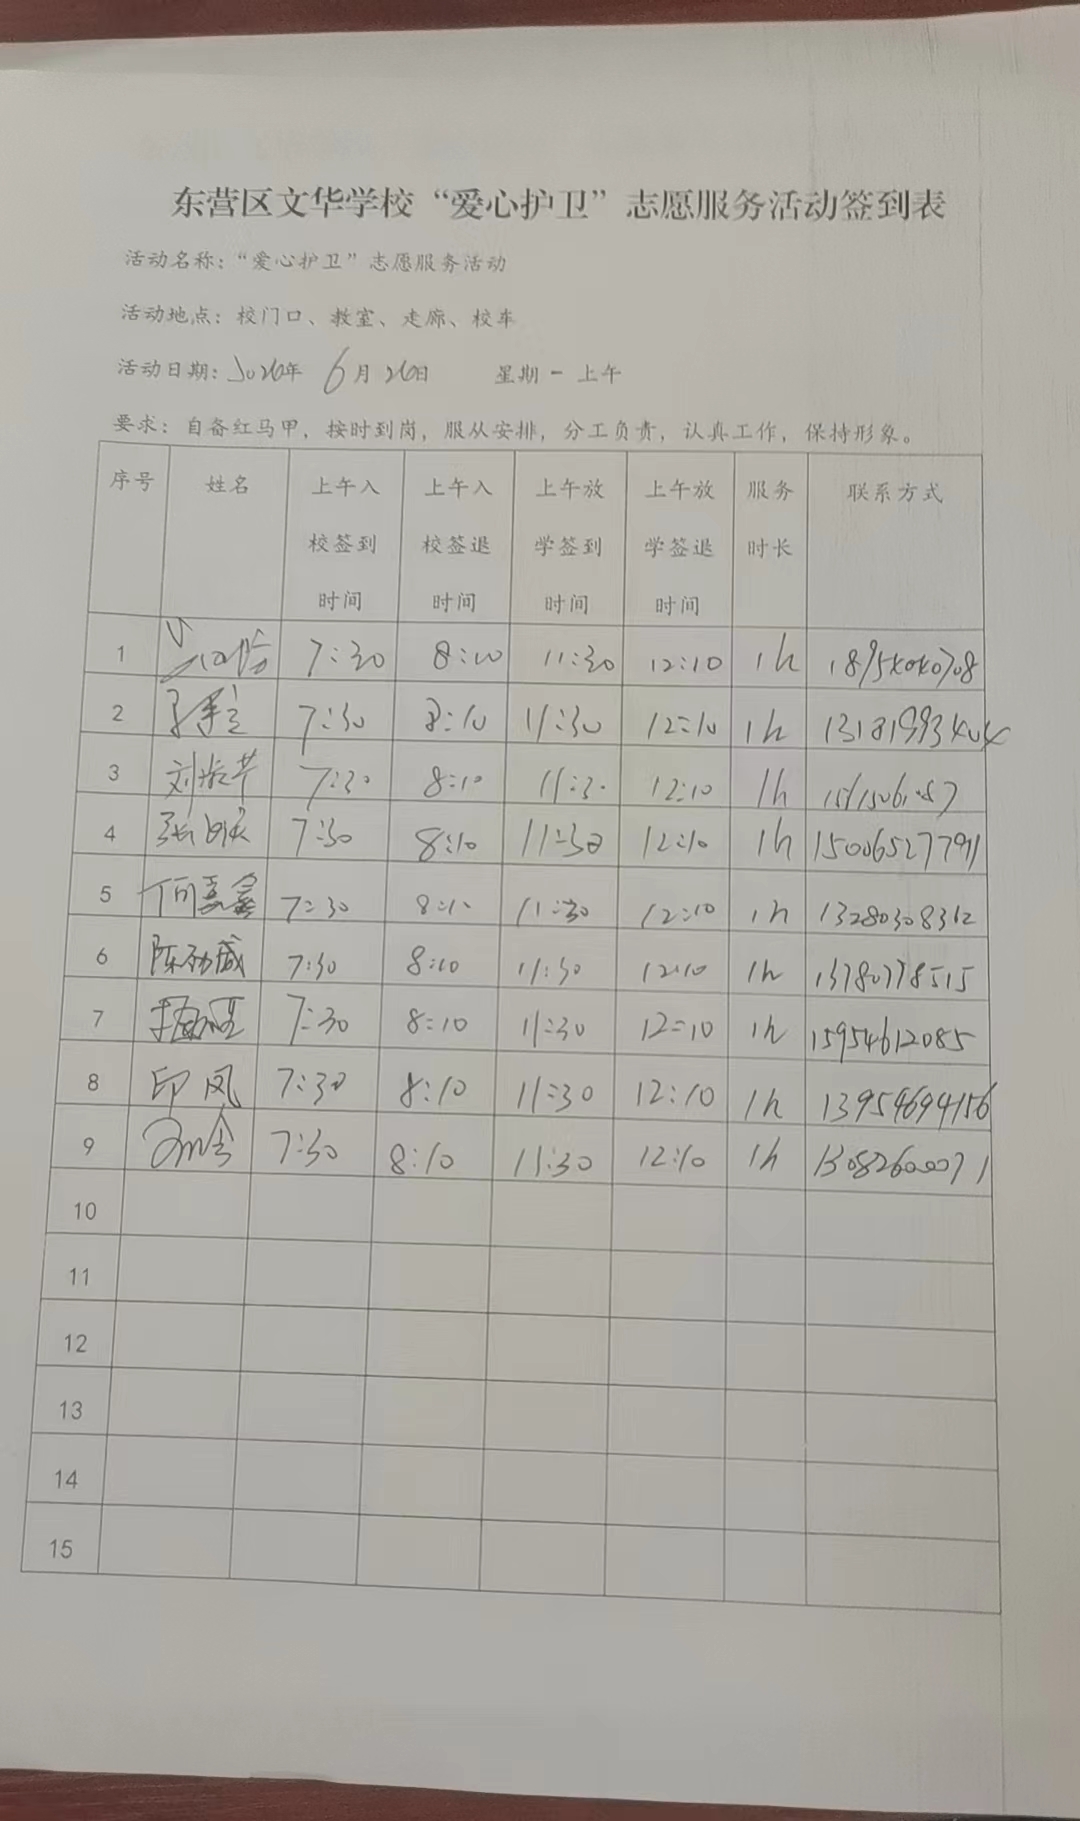 东营区文华学校“爱心护卫”志愿服务活动签到表
活动名称：“爱心护卫”志愿服务活动
活动地点：校门口、教室、走廊、校车
活动日期：2026年 6月26日 星期一上午
要求：自备红马甲，按时到岗，服从安排，分工负责，认真工作，保持形象。
序号 姓名 上午入校签到时间 上午入校签退时间 上午放学签到时间 上午放学签退时间 服务时长 联系方式
1 7:30 8:10 11:30 12:10 1h
2 7:30 8:10 11:30 12:10 1h 13181993404
3 7:30 8:10 11:30 12:10 1h
4 7:30 8:10 11:30 12:10 1h
5 何嘉鑫 7:30 8:10 11:30 12:10 1h 13280308312
6 7:30 8:10 11:30 12:10 1h 13780778515
7 7:30 8:10 11:30 12:10 1h 15954612085
8 印凤 7:30 8:10 11:30 12:10 1h 13954694156
9 7:30 8:10 11:30 12:10 1h 13082600071
10
11
12
13
14
15